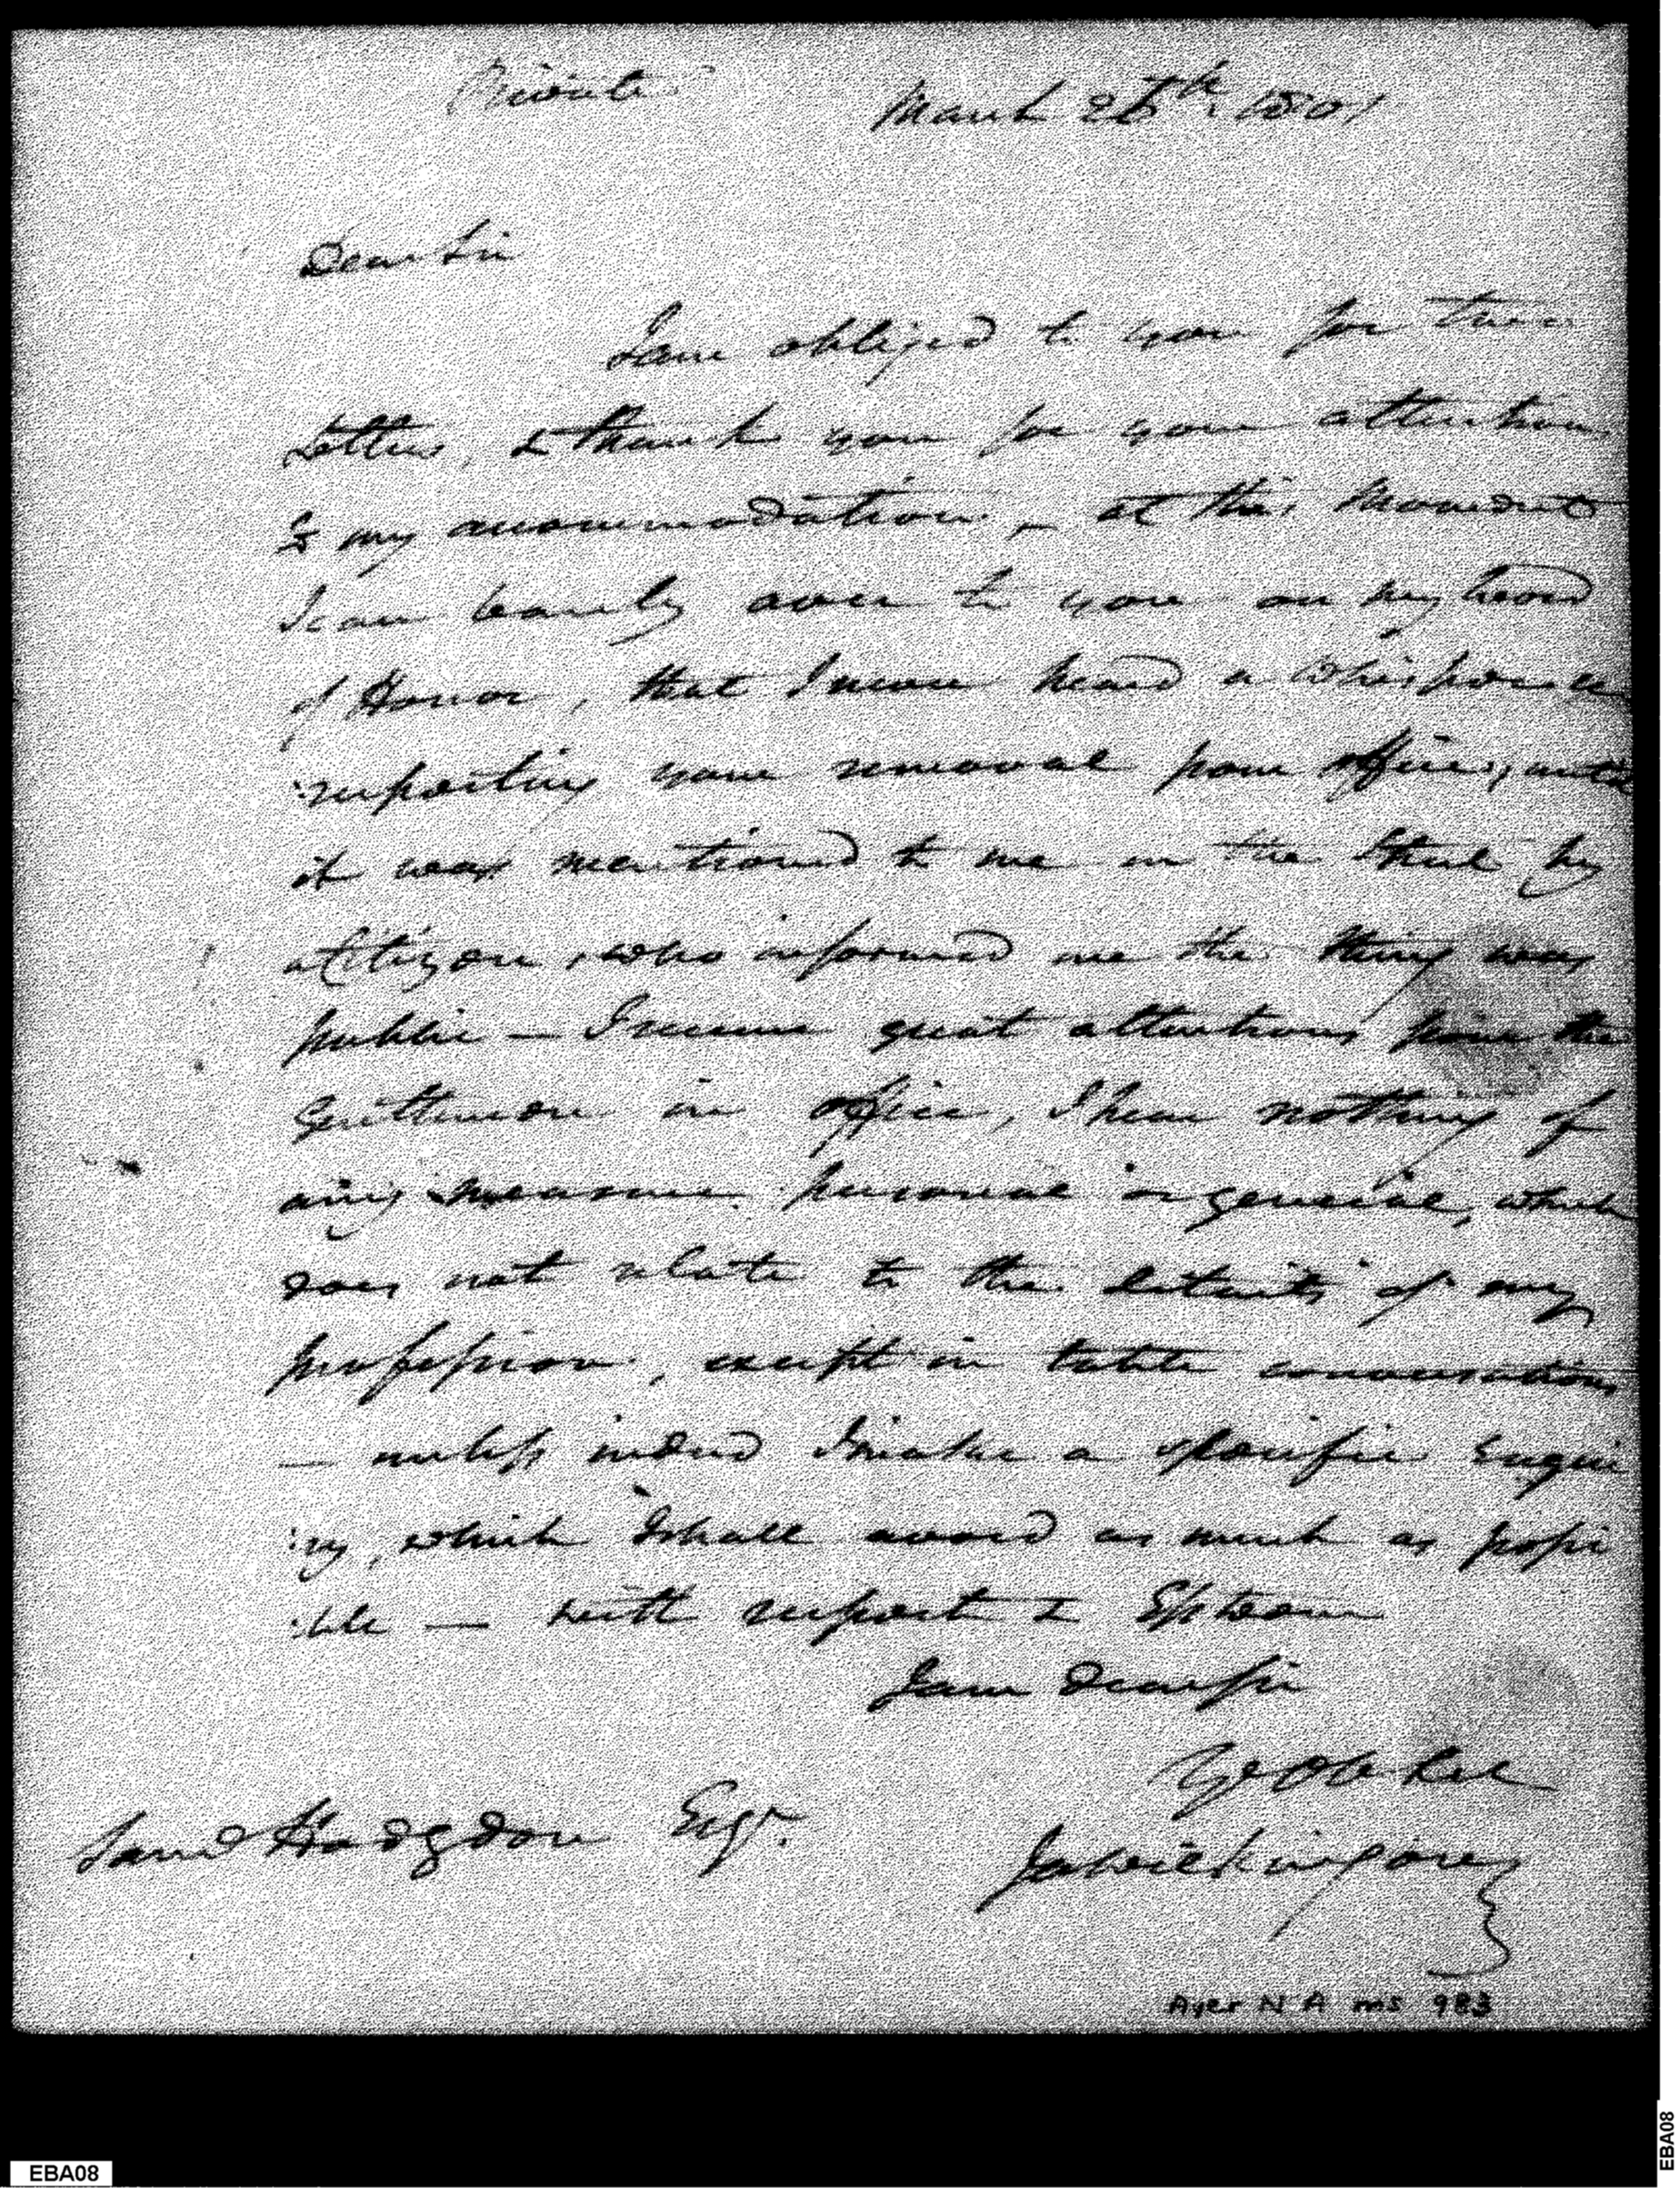 Private
March 26th. 1801
Dear Sir
I am obliged to you for two
Letters, & thank you for your attention
to my accommodation, – at this moment
I can barely aver to you on my word
of Honor, that I never heard a whisper
:respecting your removal from office, until
it was mentioned to me in the Street by
a Citizen, who informed me the thing was
public — I receive great attentions from the
Gentlemen in office, I hear nothing of
any measure personal or general, which
does not relate to the details of my
profession, except in table conversations
— unless indeed I make a specific Enqui
:ry, which I shall avoid as much as possi
:ble — with respect & Esteem
I am Dear Sir
Yr Ob Ser
Ja Wilkinson
Sam Hodgdon Esqr.
Ayer N A ms 983
EBA08
EBA08